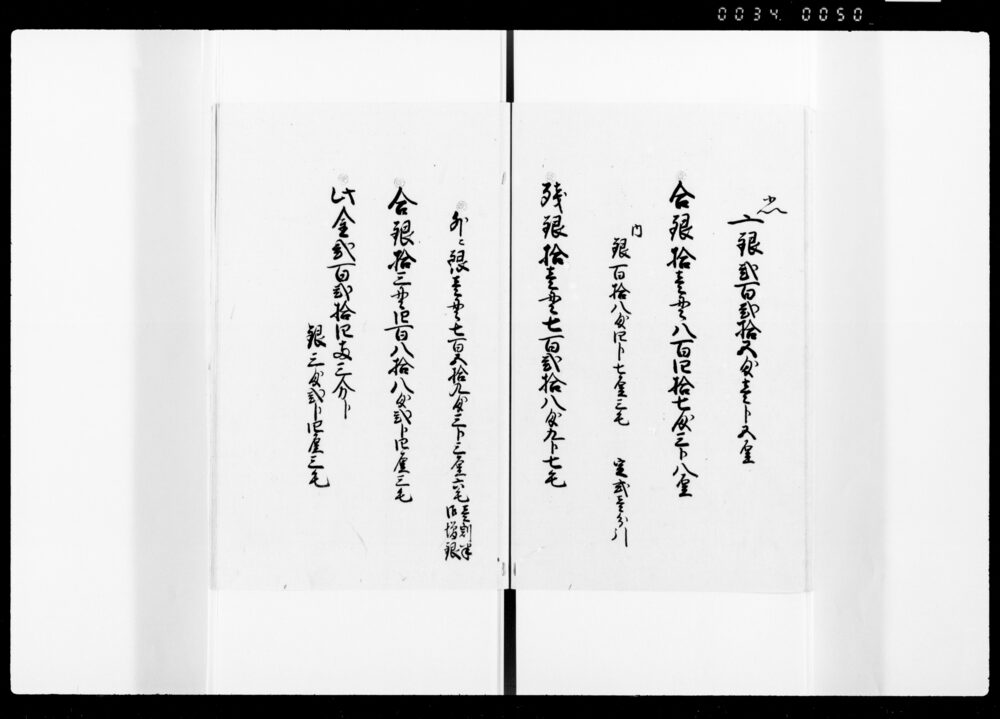 0034 0050
一 銀弐百弐拾五匁壱分五厘
合銀拾壱貫八百四拾七匁三分八厘
内
銀百拾八匁四分七厘三毛 定式壱分引
残銀拾壱貫七百弐拾八匁九分七毛
外ニ銀壱貫七百五拾九匁三分三厘六毛 壱割半
御増銀
合銀拾三貫四百八拾八匁弐分四厘三毛
此金弐百弐拾四両三分ト
銀三匁弐分四厘三毛